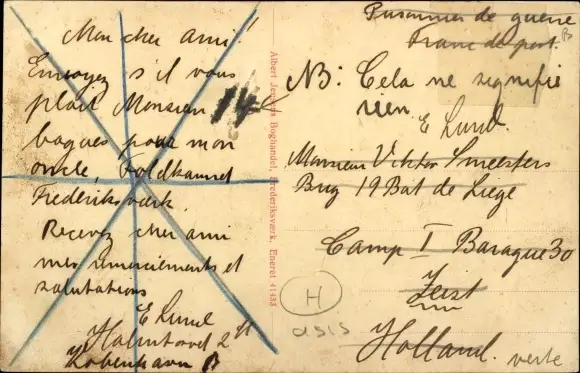 Mon cher ami!
Envoyez s'il vous
plait Monsieur 14
bagues pour mon
oncle,
Frederiksværk.
Recevez cher ami
mes remerciements et
salutations
E Lund
Holmtorvet 2 st
København B
Albert Jensens Boghandel, Frederiksværk. Eneret 41433
Prisonnier de guerre
Franc de port.
B
NB: Cela ne signifie
rien.
E Lund.
Monsieur Viktor Smeesters
Brig 19 Bat de Liege
Camp I Baraque 30
Zeist
Holland.
H
verte